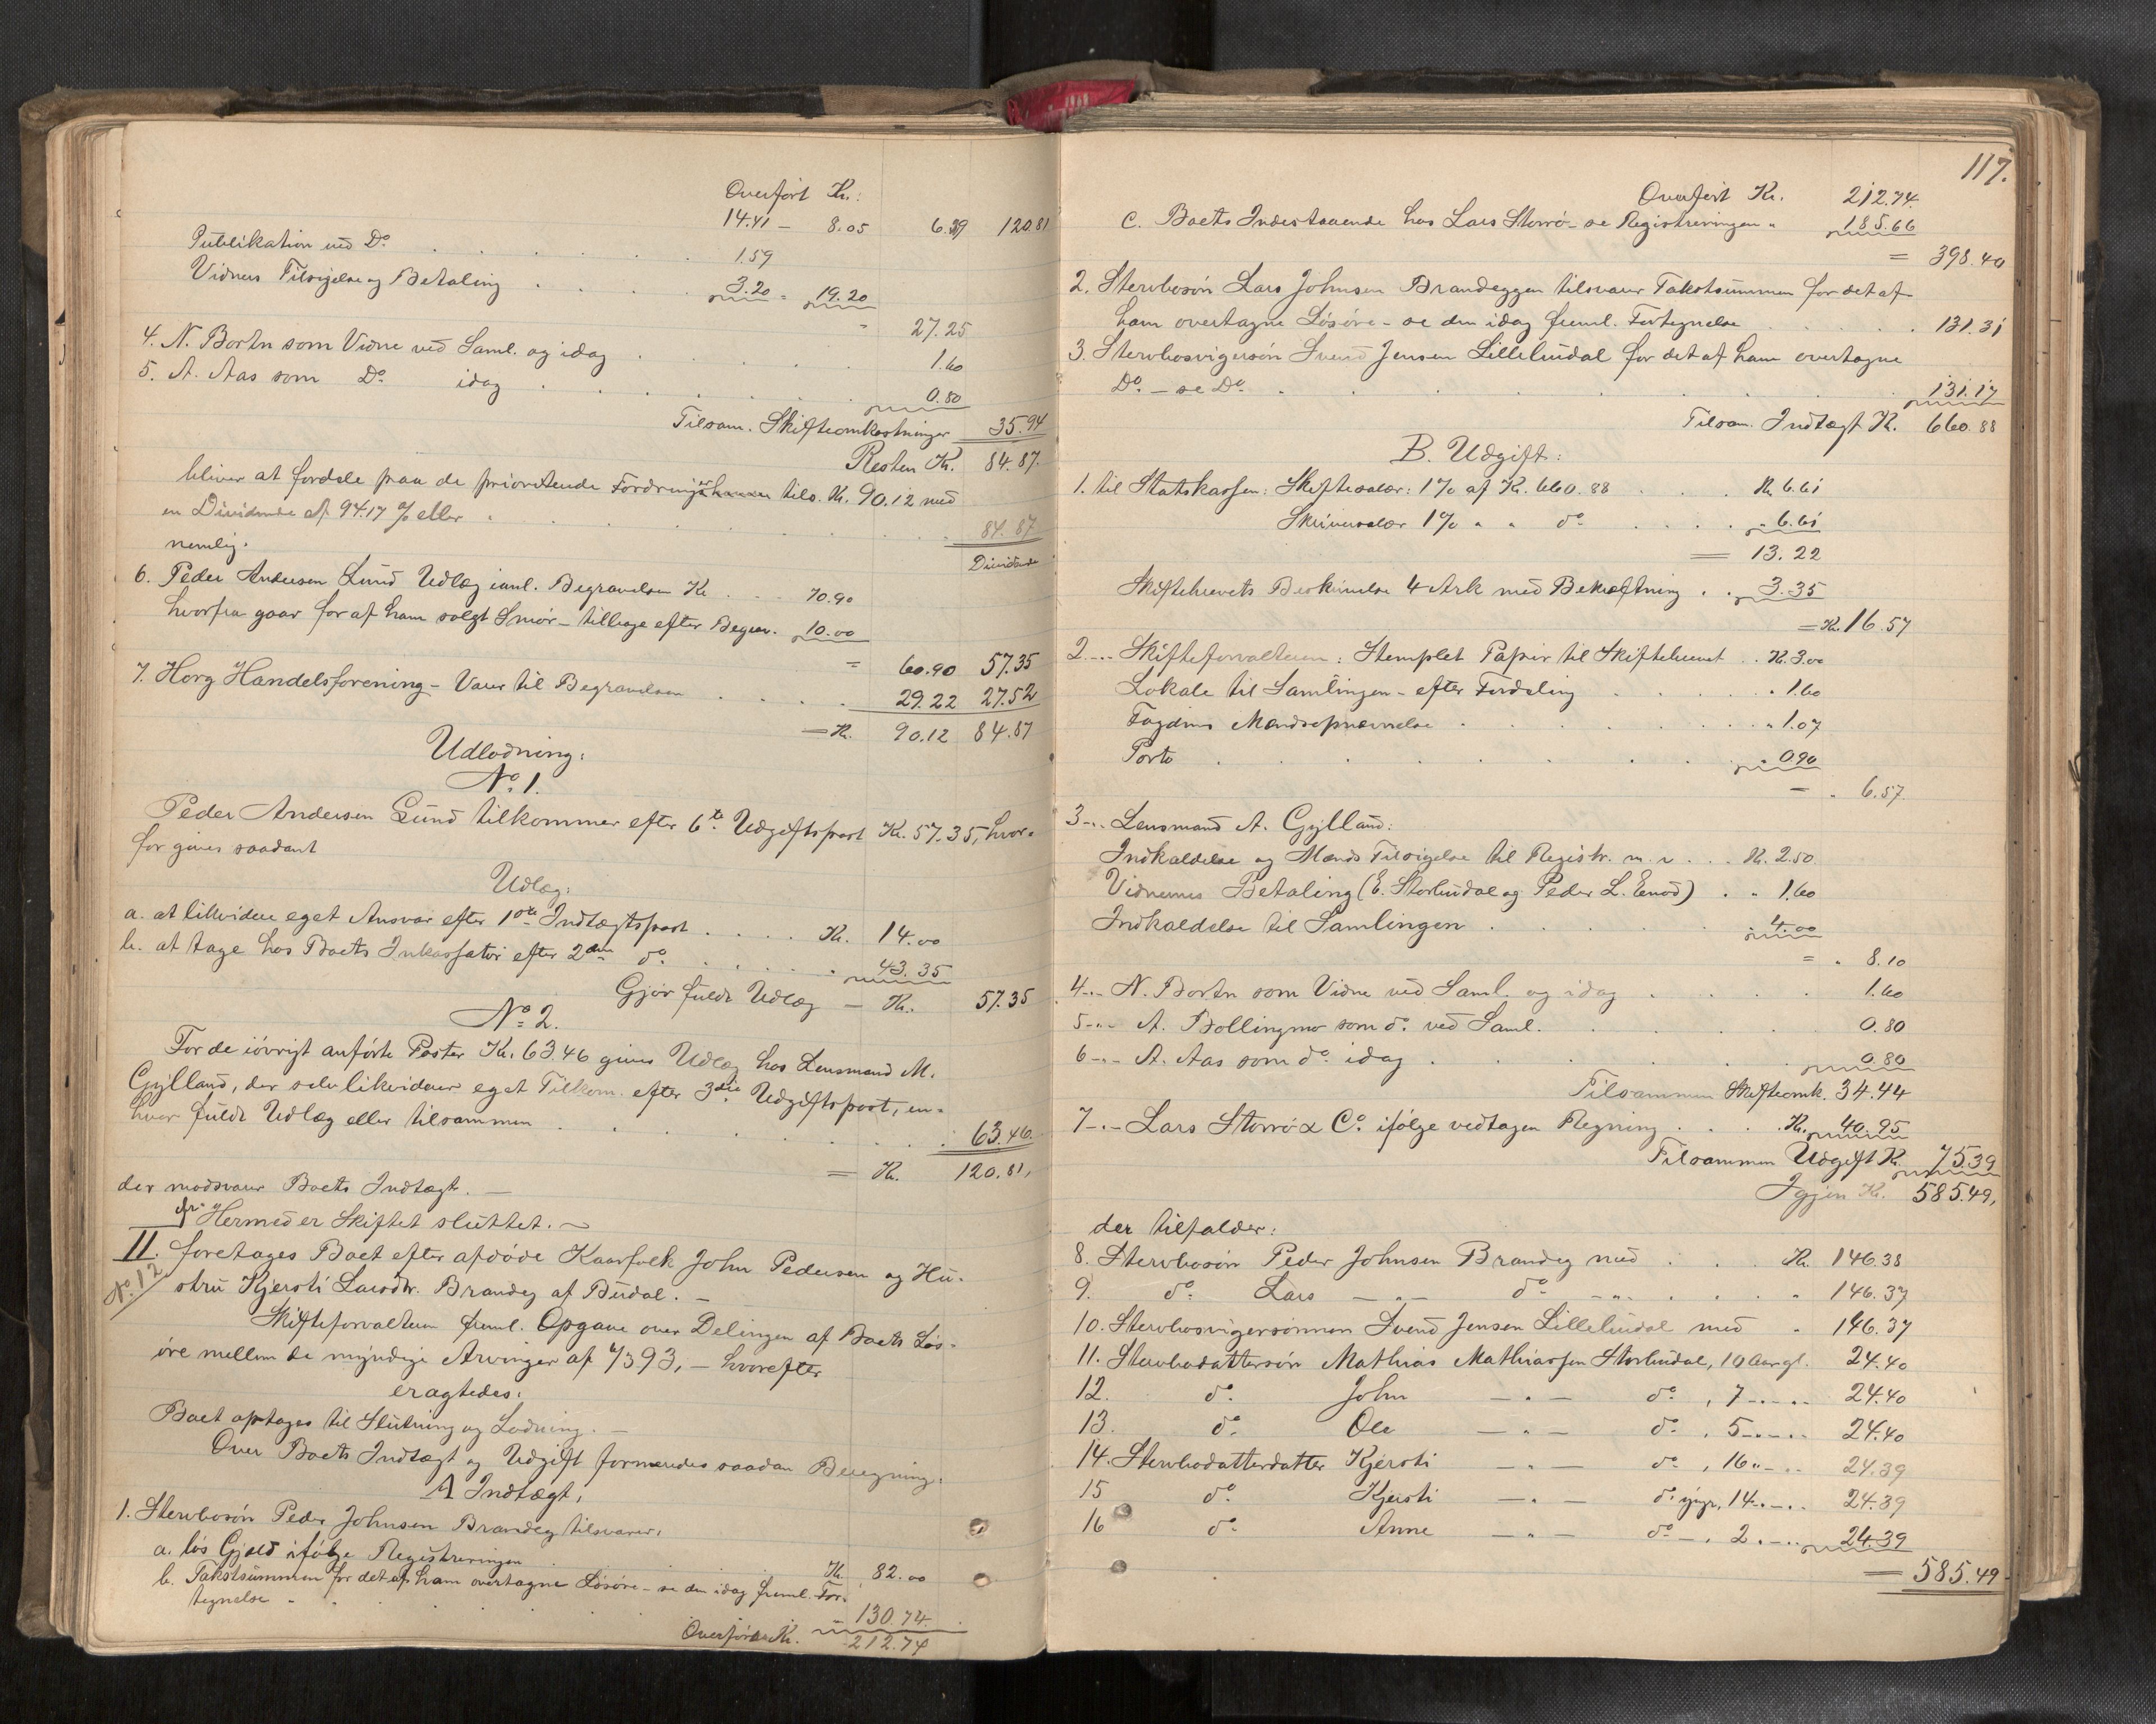 Overført Kr:
14.41 - 8.05 6.39 120.81
Publikation ved Do. . . . . . 1.59
Vidners Tilsigelse og Betaling . . . . 3.20 = 19.20
" 27.25
4. N. Bortn som Vidne ved Saml. og idag . . . . 1.60
5. A. Aas som Do. idag . . . . . . 0.80
Tilsam. Skifteomkostninger 35.94
Resten Kr. 84.87.
bliver at fordele paa de prioriterede Fordringer tils. Kr. 90.12 med
en Dividende af 94.17 % eller . . . . . . 84.87
nemlig: Dividende
6. Peder Andersen Lund Udlæg ianl. Begravelsen Kr . . . 70.90
hvorfra gaar for af ham solgt Smør - tilbage efter Begrav. 10.00
= 60.90 57.35
7. Horg Handelsforening - Varer til Begravelsen . . . 29.22 27.52
= Kr. 90.12 84.87
Udlodning:
No. 1.
Peder Andersen Lund tilkommer efter 6te Udgiftspost Kr. 57.35, hvor-
for gives saadant
Udlæg:
a. at likvidere eget Ansvar efter 1ste Indtægtspost . . . . Kr. 14.00
b. at tage hos Boets Inkassator efter 2den do. . . . . . 43.35
Gjør fuldt Udlæg - Kr. 57.35
No. 2.
For de iøvrigt anførte Poster Kr. 63.46 gives Udlæg hos Lensmand M.
Gylland, der selv likviderer eget Tilkom. efter 3die Udgiftspost, en-
hver fuldt Udlæg eller tilsammen . . . . . . 63.46.
= Kr. 120.81,
der modsvarer Boets Indtægt. -
Hermed er Skiftet sluttet. ~
II. foretages Boet efter afdøde Kaarfolk John Pedersen og Hu-
No. 12. stru Kjersti Larsdtr. Brandeg af Budal. -
Skifteforvalteren freml. Opgave over Delingen af Boets Løs-
øre mellem de myndige Arvinger af 4/393, - hvorefter
eragtedes:
Boet optages til Slutning og Lodning. -
Over Boets Indtægt og Udgift formeredes saadan Beregning:
A Indtægt,
1. Stervbosøn Peder Johnsen Brandeg tilsvarer,
a. løs Gjæld ifølge Registreringen . . . Kr. 82.00
b. Takstsummen for det af ham overtagne Løsøre - se den idag freml. For-
tegnelse - . . . . . " 130.74.
Overføres Kr. 212.74
117.
Overført Kr. 212.74.
c. Boets Indestaaende hos Lars Storrø - se Registreringen " 185.66
= 398.40
2. Stervbosøn Lars Johnsen Brandeggen tilsvarer Takstsummen for det af
ham overtagne Løsøre - se den idag freml. Fortegnelse . . . . 131.31
3. Stervbosvigersøn Svend Jensen Lillebudal for det af ham overtagne
Do. - se Do. . . . . . . . 131.17
Tilsam. Indtægt Kr. 660.88
B. Udgift:
1. til Statskassen: Skiftesalær: 1% af Kr. 660.88 . . . Kr. 6.61
Skriversalær 1% " " do. . . . . " 6.61
= 13.22
Skiftebrevets Beskrivelse 4 Ark med Bekræftning . . 3.35
= Kr. 16.57
2 - " - Skifteforvalteren: Stemplet Papir til Skiftebrevet . . Kr. 3.00
Lokale til Samlingen - efter Fordeling . . . . " 1.60
Fogdens Mændsopnævnelse . . . . . " 1.07
Porto . . . . . . " 0.90
= " 6.57.
3 - " - Lensmand A. Gylland:
Indkaldelse og Mænds Tilsigelse til Registr. m. v. . . Kr. 2.50.
Vidnernes Betaling (E. Storbudal og Peder L. Enod) . " 1.60
Indkaldelse til Samlingen . . . . . " 4.00
= " 8.10
4 - " - N. Bortn som Vidne ved Saml. og idag . . . . 1.60
5 - " - A. Bollingmo som do. ved Saml. . . . . 0.80
6 - " - A. Aas som do. idag . . . . . 0.80
Tilsammen Skifteomk. 34.44
7 - " - Lars Storrø & Co. ifølge vedtagen Regning . . . Kr. 40.95
Tilsammen Udgift Kr. 75.39
Igjen Kr. 585.49,
der tilfalder:
8. Stervbosøn Peder Johnsen Brandeg med . . . Kr. 146.38
9. do. Lars - " - do. - " - . . . " 146.37
10. Stervbosvigersønnen Svend Jensen Lillebudal med " 146.37
11. Stervbodattersøn Mathias Mathiassen Storbudal, 10 Aar gl. 24.40
12. do. John - " - do. , 7 - " - " 24.40
13. do. Ole - " - do. , 5 - " - " 24.40
14. Stervbodatterdatter Kjersti - " - do. , 16 " - " 24.39
15 do. Kjersti - " - do. yngr, 14 - " - " 24.39
16 do. Anne - " - do. - , 2 " - " 24.39
= 585.49 -